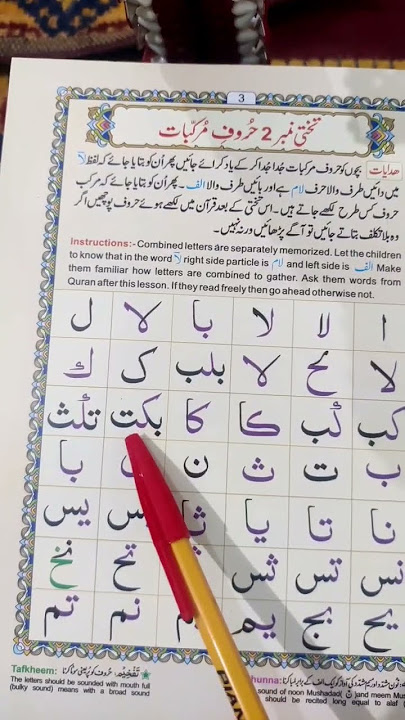 3
تختی نمبر 2 حُروفِ مُرکّبات
ھدایات بچوں کو حروف مرکبات جُدا جُدا کر کے یاد کرائے جائیں پھر اُن کو بتایا جائے کہ لفظ لا
میں دائیں طرف والا حرف لام ہے اور بائیں طرف والا الف ۔ پھر اُن کو بتایا جائے کہ مرکب
حروف کس طرح لکھے جاتے ہیں۔ اس تختی کے بعد قرآن میں لکھے ہوئے حروف پوچھیں اگر
وہ بلا تکلف بتاتے جائیں تو آگے پڑھائیں ورنہ نہیں۔
Instructions:- Combined letters are separately memorized. Let the children
to know that in the word لا right side particle is لام and left side is الف Make
them familiar how letters are combined to gather. Ask them words from
Quran after this lesson. If they read freely then go ahead otherwise not.
ا لا لا با لا ل
لا لح لا بلب ک ك
كب كب كا كا بكت تلث
ب ت ث ن با
نا تا يا ثا يس
نس تس ثس تح نخ
يح بج يم نم تم
Takfheem: تَفْخِیْم: حُروف کو پُر یعنی موٹا کرنا
The letters should be sounded with mouth full
(bulky sound) means with a broad sound
hunna:
sound of noon Mushadad( نّ )and meem Mus
should be recited long equal to alaf (
PIAN